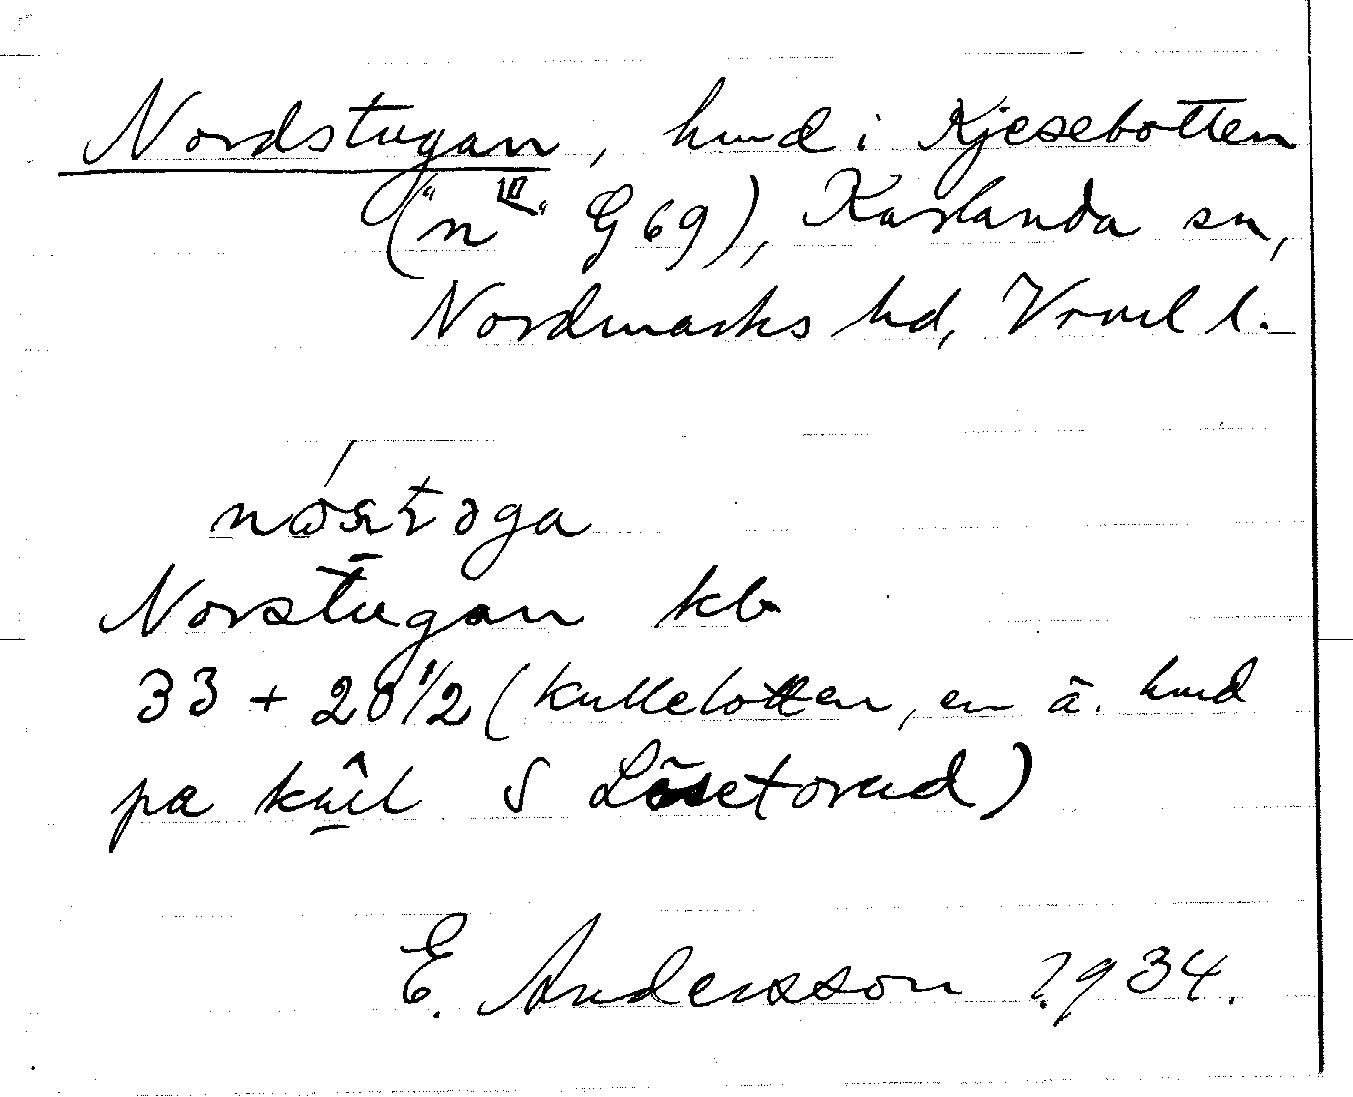 Nordstugan, hmd i Kjesebotten
("n III" G 69), Karlanda sn,
Nordmarks hd, Vrml l.
Norstugan kb
33 + 28 1/2 (Kullelotten, en ä. hmd
på kûl S Lösetorud)
E. Andersson 1934.